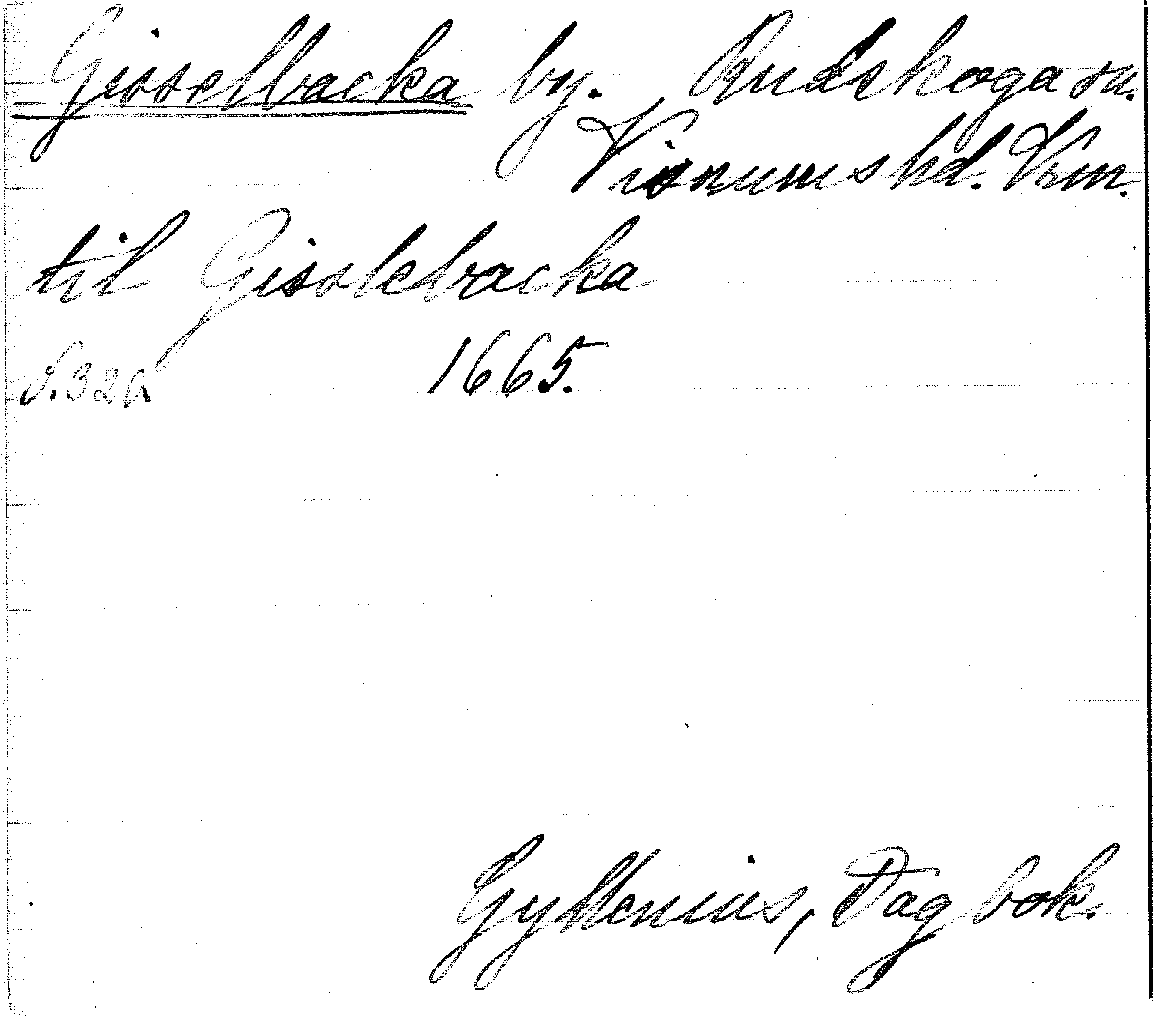 Gisselbacka by. Rudskoga sn.
Visnums hd. Vrm.
til Gisslebacka
S. 326 1665.
Gyllenius, Dagbok.